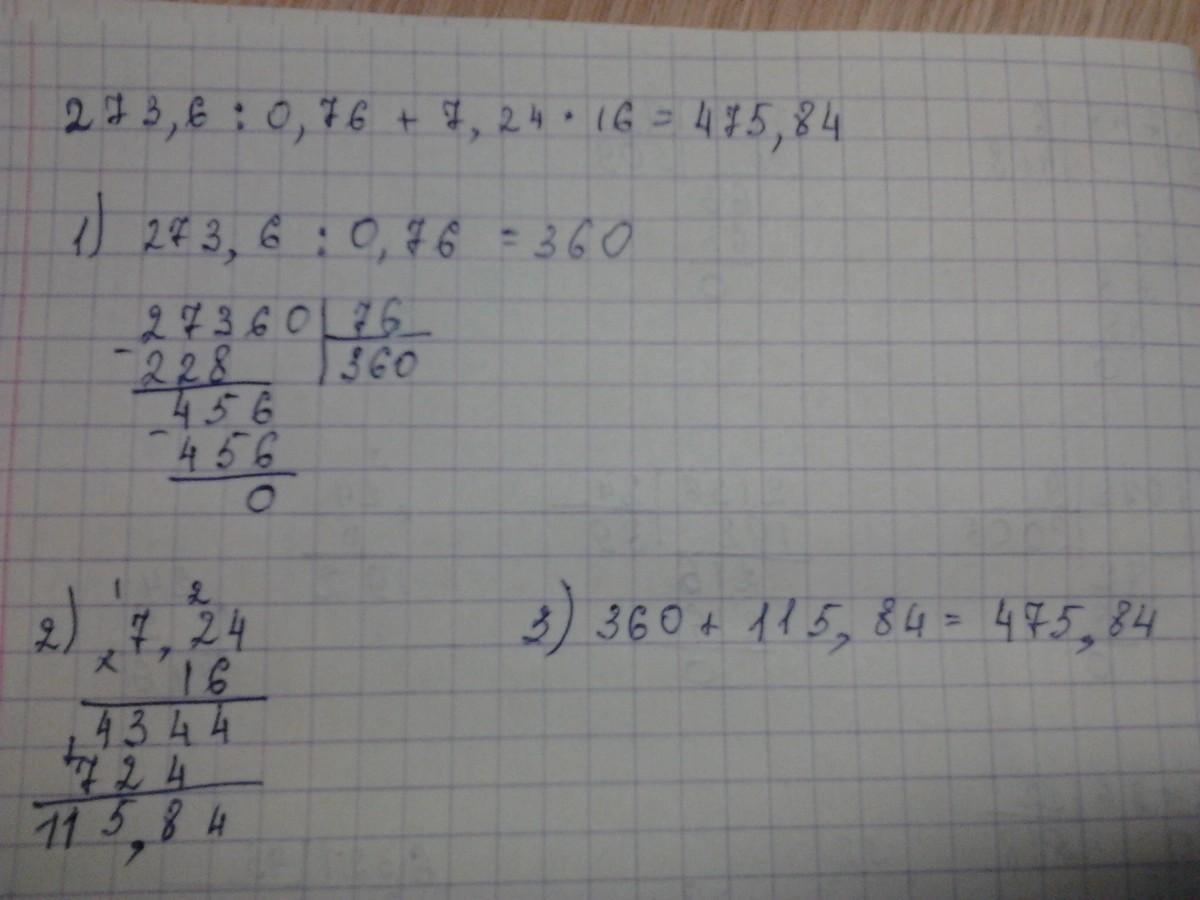 273,6 : 0,76 + 7,24 · 16 = 475,84
1) 273,6 : 0,76 = 360
27360 | 76
- 228 | 360
456
- 456
0
1 2
2) 7,24
× 16
4344
+ 724
115,84
3) 360 + 115,84 = 475,84